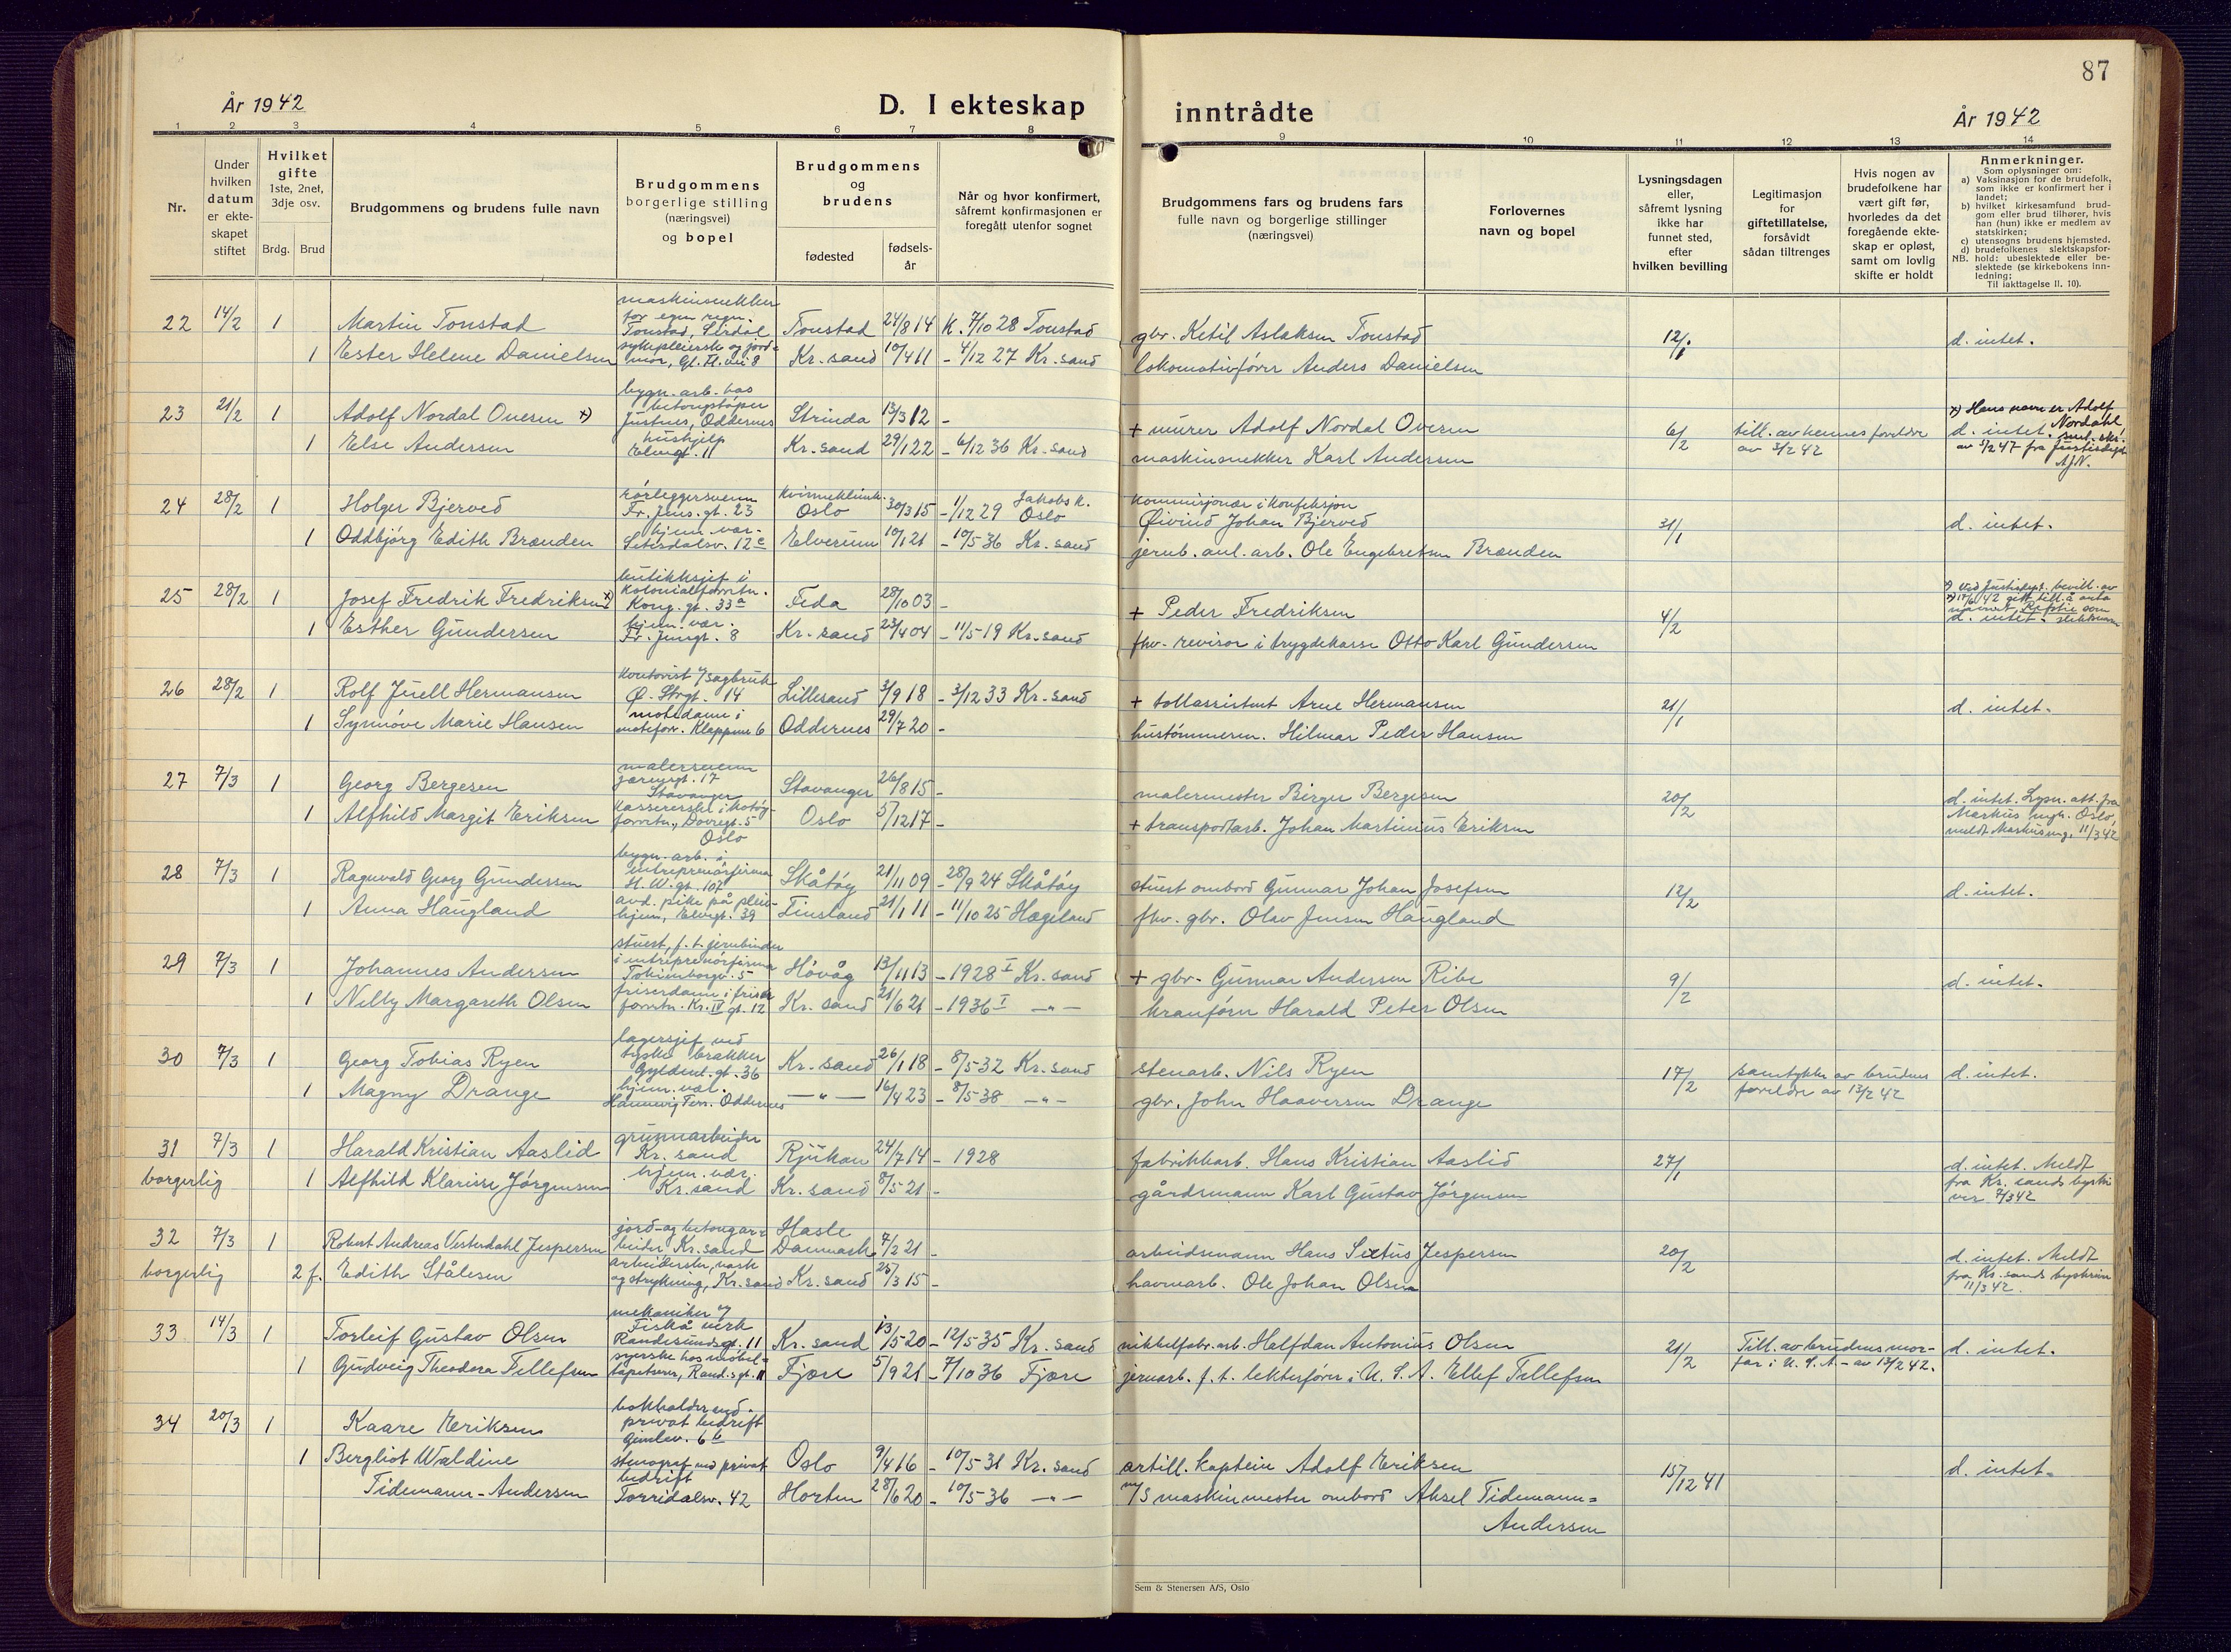 87
År 1942
D. I ekteskap inntrådte
År 1942
1 2 3 4 5 6 7 8 9 10 11 12 13 14
Nr.
Under hvilken datum er ekte-skapet stiftet
Hvilket gifte 1ste, 2net, 3dje osv.
Brdg. Brud
Brudgommens og brudens fulle navn
Brudgommens borgerlige stilling (næringsvei) og bopel
Brudgommens og brudens
fødested
fødsels-år
Når og hvor konfirmert, såfremt konfirmasjonen er foregått utenfor sognet
Brudgommens fars og brudens fars fulle navn og borgerlige stillinger (næringsvei)
Forlovernes navn og bopel
Lysningsdagen eller, såfremt lysning ikke har funnet sted, efter hvilken bevilling
Legitimasjon for giftetillatelse, forsåvidt sådan tiltrenges
Hvis nogen av brudefolkene har vært gift før, hvorledes da det foregående ekte-skap er opløst, samt om lovlig skifte er holdt
Anmerkninger.
Som oplysninger om:
a) Vaksinasjon for de brudefolk, som ikke er konfirmert her i landet;
b) hvilket kirkesamfund brud-gom eller brud tilhører, hvis han (hun) ikke er medlem av statskirken;
c) utensogns brudens hjemsted.
d) brudefolkenes slektskapsfor-hold: ubeslektede eller be-slektede (se kirkebokens inn-ledning;
NB.
Til iakttagelse II. 10).
maskinsnekker
for egen regn.
22 14/2 1 Martin Tonstad Tonstad, Sirdal Tonstad 24/8 14 K. 7/10 28 Tonstad gbr. Ketil Aslaksen Tonstad 12/1 d. intet.
sykepleiersk og jord-
1 Ester Helene Danielsen mor, Gl. Fl. vei 8 Kr. sand 10/4 11 - 4/12 27 Kr. sand lokomotivfører Anders Danielsen
bygn. arb. hos
betongstøper
23 21/2 1 Adolf Nordal Overen x) Justnes, Oddernes Strinda 13/3 12 - + murer Adolf Nordal Overen 6/2 till. av hennes foreldre av 3/2 42 x) Hans navn er Adolf Nordahl,
hushjelp
1 Else Andersen Elvegt. 11 Kr. sand 29/1 22 - 6/12 36 Kr. sand maskinsnekker Karl Andersen d. intet.
rørleggersvenn Kvinneklinik. Jakobs k. kommisjonær i konfeksjon
24 28/2 1 Holger Bjerved Fr. Jens. gt. 23 Oslo 30/3 15 - 1/12 29 Oslo Øivind Johan Bjerved 31/1 d. intet.
hjem. vær.
1 Oddbjørg Edith Brænden Setesdalsv. 12c Elverum 10/1 21 - 10/5 36 Kr. sand jernb. anl. arb. Ole Engebretsen Brænden
butikksjef i
kolonialforretn.
25 28/2 1 Josef Fredrik Fredriksen x) Kong. gt. 33a Feda 28/10 03 - + Peder Fredriksen 4/2 x) Ved Justisdept. bevill. av
hjem. vær.
1 Esther Gundersen Fr. Jensgt. 8 Kr. sand 23/4 04 - 11/5 19 Kr. sand fhv. revisor i trygdekasse Otto Karl Gundersen d. intet.
kontorist v/sagbruk
26 28/2 1 Rolf Juell Hermansen Ø. Strgt. 14 Lillesand 3/9 18 - 3/12 33 Kr. sand + tollassistent Arne Hermansen 21/1 d. intet.
motedame i
1 Synnøve Marie Hansen moteforr. Klappene 6 Oddernes 29/7 20 - hustømmerm. Hilmar Peder Hansen
malersvenn
27 7/3 1 Georg Bergesen Stavanger Stavanger 26/8 15 - malermester Birger Bergesen 20/2 d. intet. Lysn. att. fra
1 Alfhild Margit Eriksen forretn., Dovregt. 5 Oslo Oslo 5/12 17 - + transportarb. Johan Martinius Eriksen Markus mgh. Oslo, meldt Markus mg. 11/3 42
bygn. arb. i
entreprenørfirma
28 7/3 1 Ragnvald Georg Gundersen H. W. gt. 107 Skåtøy 21/11 09 - 28/9 24 Skåtøy stuert ombord Gunnar Johan Josefsen 12/2 d. intet.
avd. pike på pleie-
1 Anna Haugland hjem, Elvegt. 39 Finsland 21/1 11 - 11/10 25 Hægeland fhv. gbr. Olav Jensen Haugland
stuert, f. t. jernbinder
i entreprenørfirma
29 7/3 1 Johannes Andersen Høvåg 13/11 13 - 1928 I Kr. sand + gbr. Gunnar Andersen Ribe 9/2 d. intet.
friserdame i friser
1 Nelly Margareth Olsen forretn. Kr. IV gt. 12 Kr. sand 21/6 21 - 1936 I -"- kranfører Harald Peter Olsen
lagersjef ved
tyske brakker
30 7/3 1 Georg Tobias Ryen Gyldenl. gt. 36 Kr. sand 26/1 18 - 8/5 32 Kr. sand stenarb. Nils Ryen 17/2 samtykke av brudens foreldre av 13/2 42 d. intet.
hjem. vær.
1 Magny Drange Hannevig Terr. Oddernes -"- 16/4 23 - 8/5 38 -"- gbr. John Haaversen Drange
gruvearbeider
31 7/3 1 Harald Kristian Aaslid Kr. sand Rjukan 24/7 14 - 1928 fabrikkarb. Hans Kristian Aaslid 27/1 d. intet. Meldt
hjem. vær.
borgerlig 1 Alfhild Klarisse Jørgensen Kr. sand Kr. sand 8/5 21 - gårdsmann Karl Gustav Jørgensen fra Kr. sands byskri ver 7/3 42
jord- og betongar- Hasle
32 7/3 1 Robert Andreas Vesterdahl Jespersen beider, Kr. sand Danmark 7/2 21 - arbeidsmann Hans Sixtus Jespersen 20/2 d. intet. Meldt
arbeiderske, vask
borgerlig 2 f. Edith Stålesen og strykning, Kr. sand Kr. sand 25/3 15 - havnearb. Ole Johan Olsen fra Kr. sands byskriver 11/3 42.
mekaniker v/
Fiskå verk
33 14/3 1 Torleif Gustav Olsen Randesundsgt. 11 Kr. sand 13/5 20 - 12/5 35 Kr. sand nikkelfabr. arb. Halfdan Antonius Olsen 21/2 Till. av brudens mor- far i U. S. A. av 13/2 42. d. intet.
syerske hos møbel-
1 Gudveig Theodora Tellefsen tapetserer, Rand.s gt. 11 Fjære 5/9 21 - 7/10 36 Fjære jernarb. f. t. lekterfører i U. S. A. Ellef Tellefsen
bokholder ved
privat bedrift
34 20/3 1 Kaare Eriksen Gimlev. 6b Oslo 9/4 16 - 10/5 31 Kr. sand artill. kaptein Adolf Eriksen 15/12 41 d. intet.
1 Bergliot Waldine stenograf ved privat bedrift
Tidemann-Andersen Torridalsv. 42 Horten 28/6 20 - 10/5 36 -"- m/s maskinmester ombord Aksel Tidemann-
Andersen
Sem & Stenersen A/S, Oslo